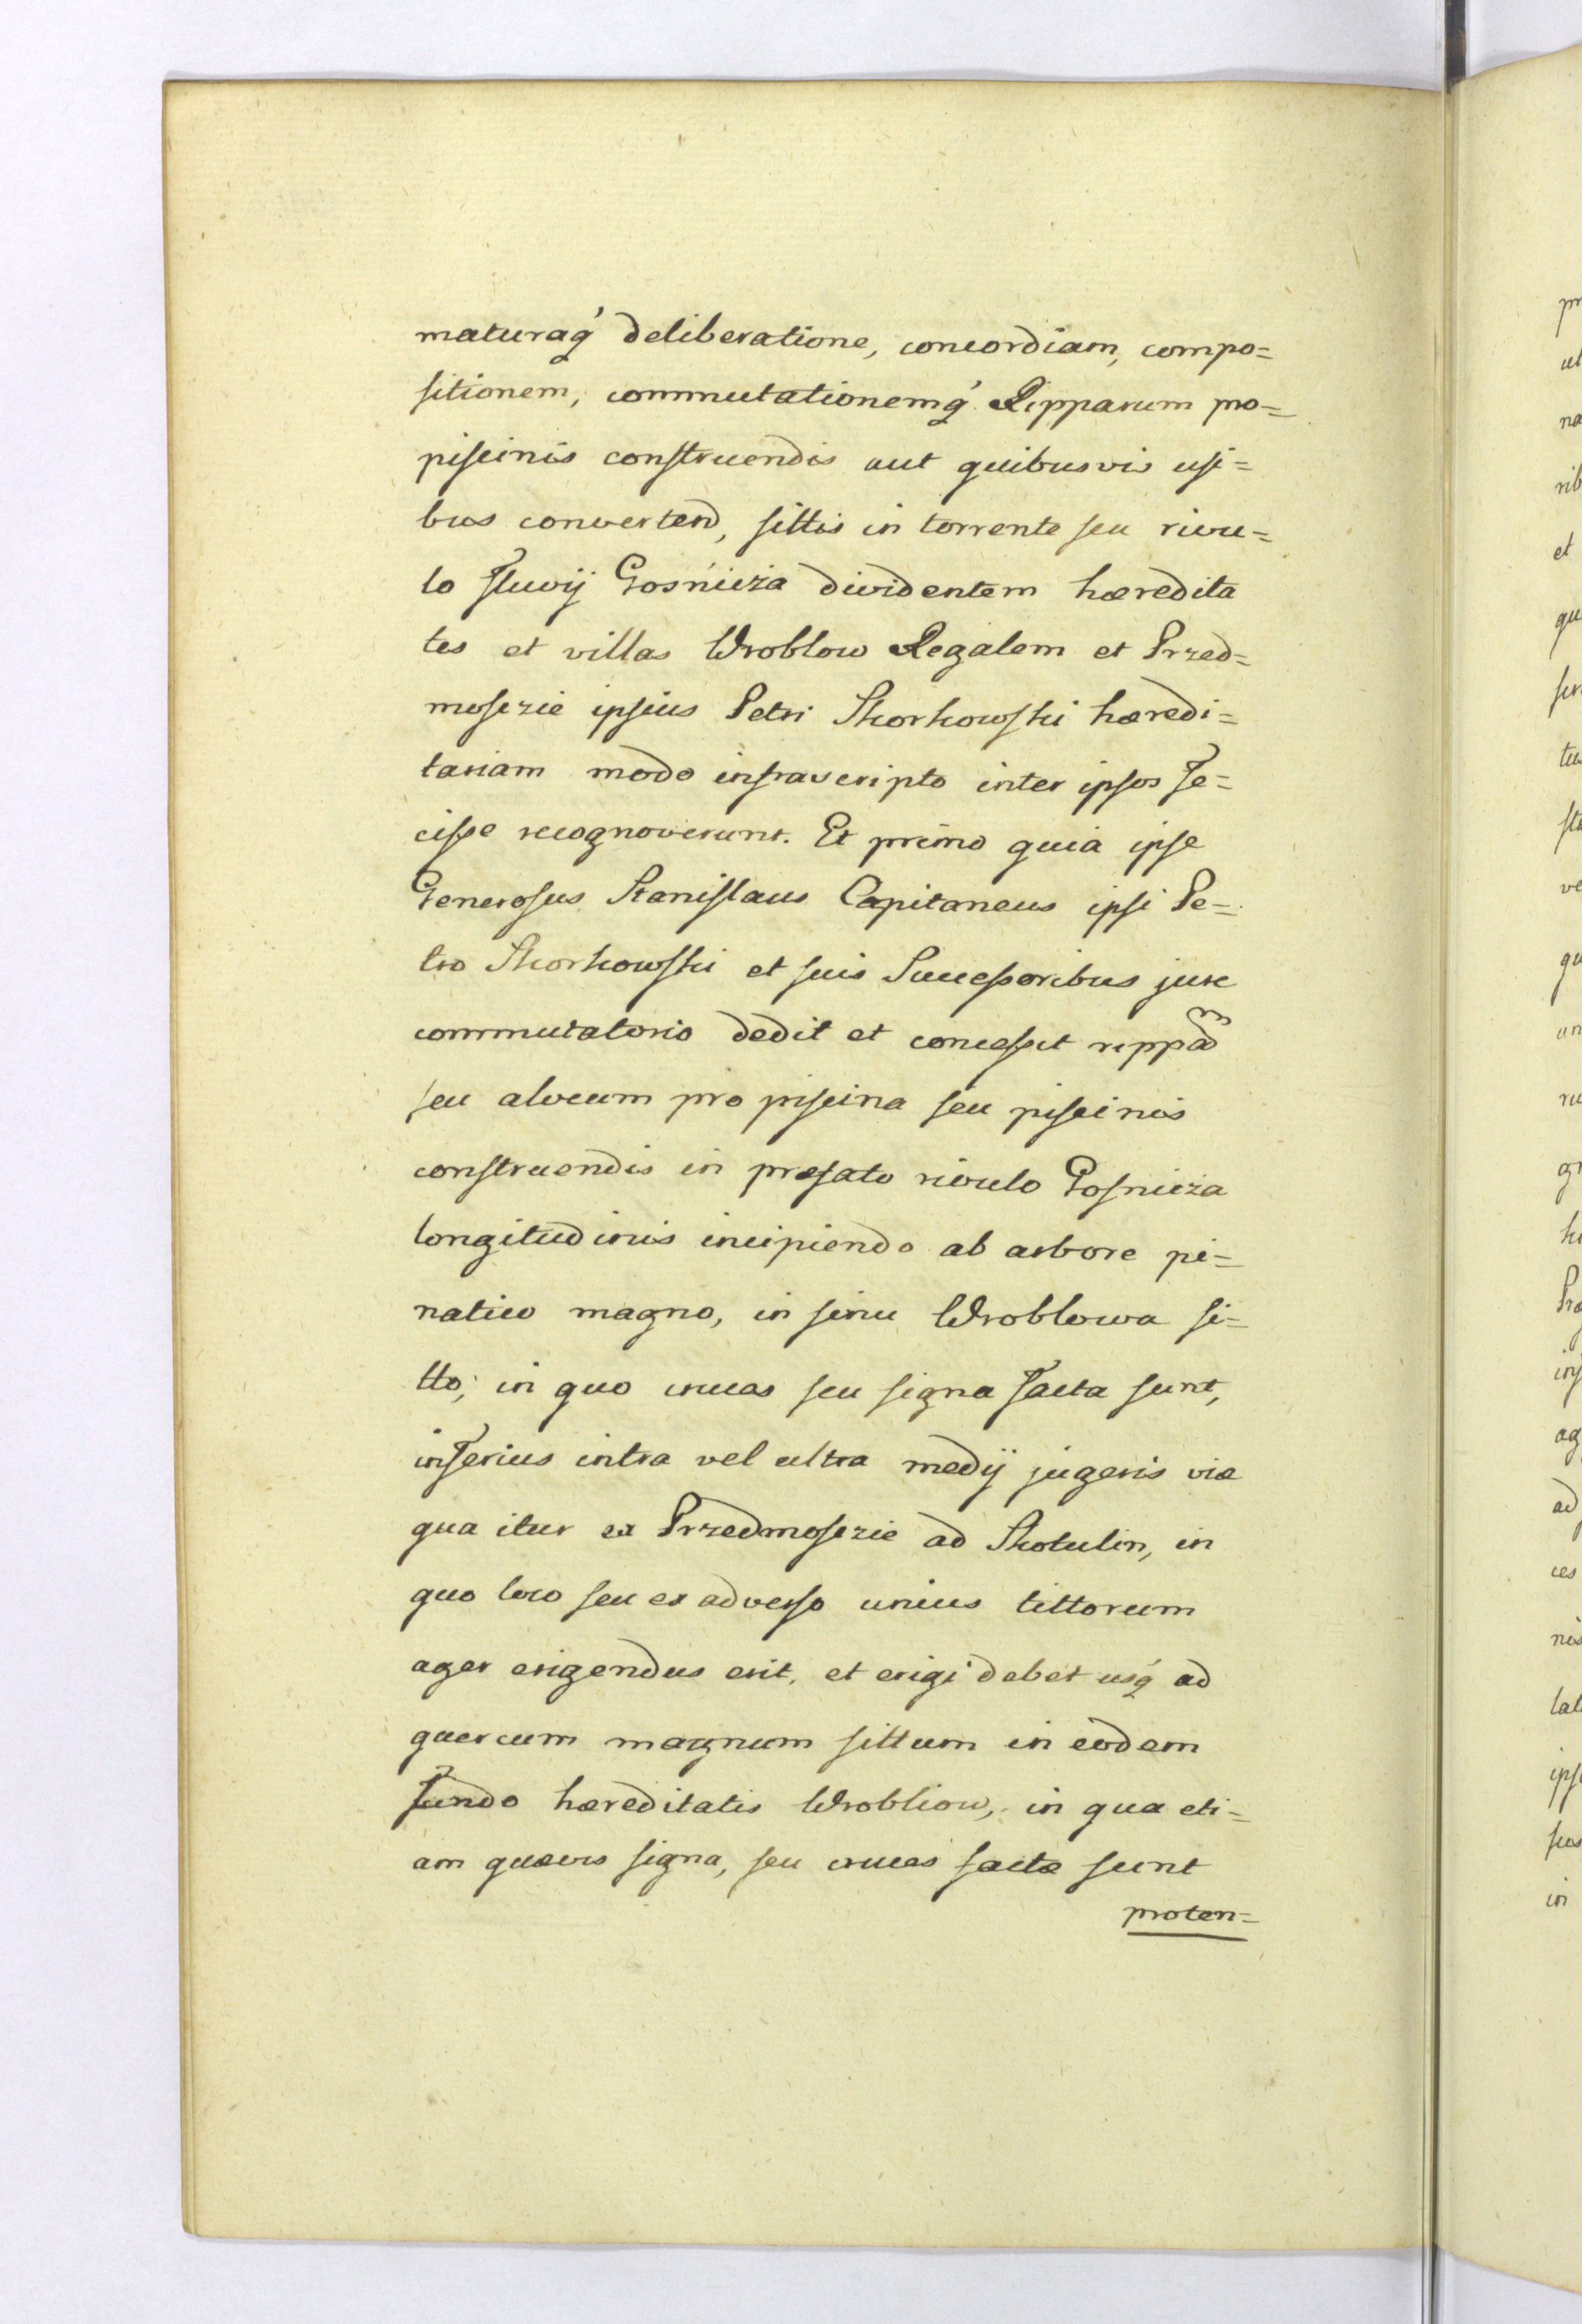 maturaq́ deliberatione, concordiam, compo=
sitionem, commutationemq́ Ripparum pro=
piscinis construendis aut quibusvis usi=
bus convertend, sittis in torrente seu rivu=
lo fluvij Gośnicza dividentem hæredita
tes et villas Wroblow Regalem et Przed=
mosczie ipsius Petri Skorkowski hæredi=
tariam modo infrascripto inter ipsos fe=
cisse recognoverunt. Et primo quia ipse
Generosus Stanislaus Capitaneus ipsi Pe=
tro Skorkowski et suis Successoribus jure
commutatorio dedit et concessit rippam
seu alveum pro piscina seu piscinis
construendis in præfato rivulo Gosnicza
longitudinis incipiendo ab arbore pi=
natico magno, in sinu Wroblowa si=
tto; in quo cruces seu signa facta sunt,
inferius intra vel ultra medij jugeris viæ
qua itur ex Przedmoscie ad Skotulin, in
quo loco seu ex adverso unius littorum
ager erigendus erit, et erigi debet usq́ ad
quercum magnum sittum in eodem
fundo hæreditatis Wrobliow, in qua eti=
am quævis signa, seu cruces factæ sunt
proten=
pr
ut
na
rib
et
qu
tu
ve
qu
ad
ces
nis
lat
ips
in